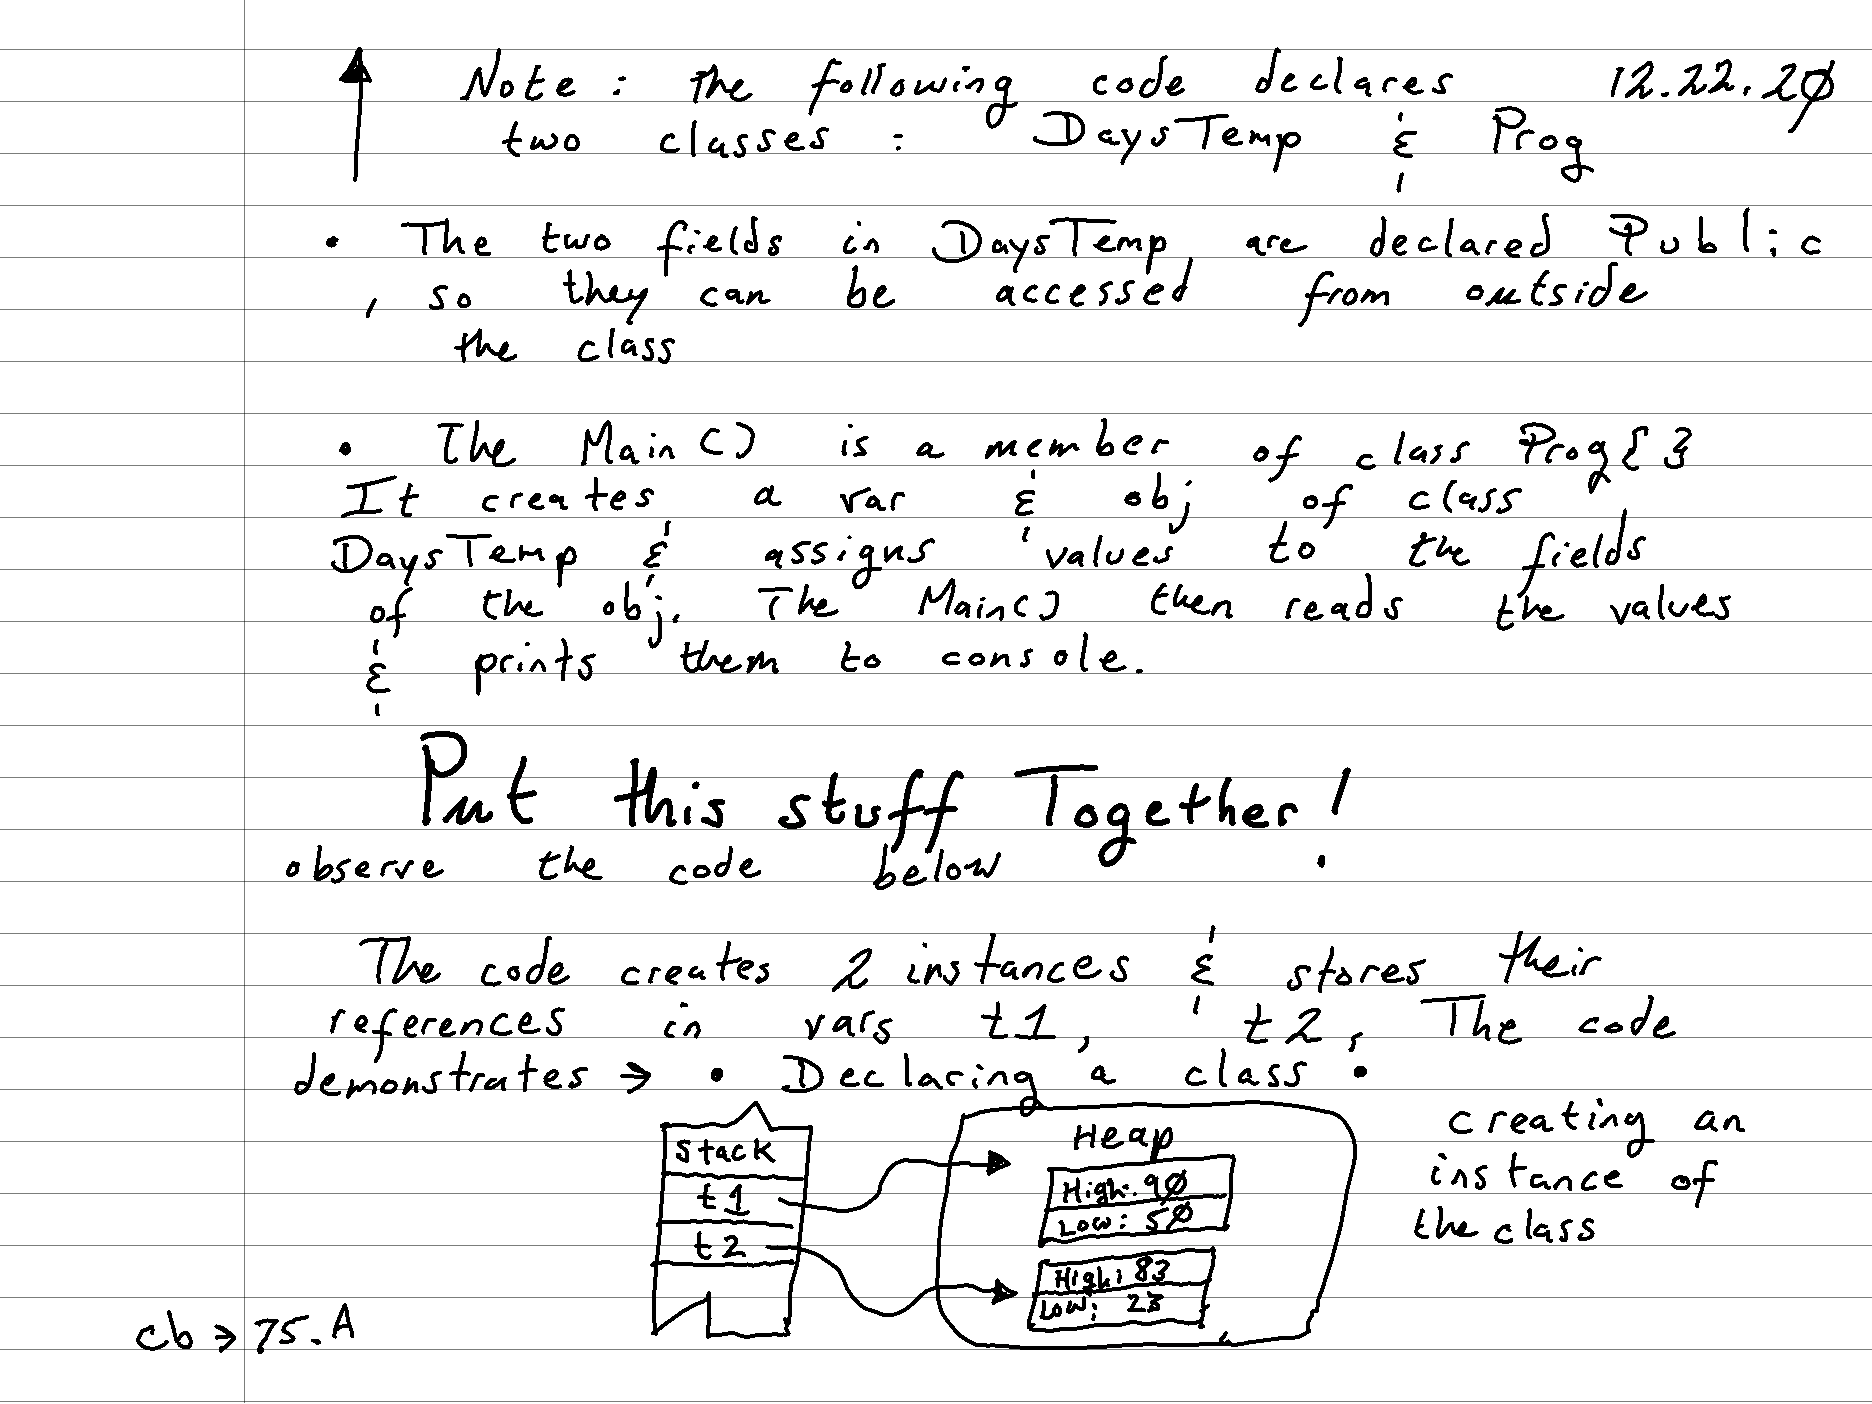 Note : The following code declares 12.22.20
two classes : DaysTemp & Prog
• The two fields in DaysTemp are declared Public
, so they can be accessed from outside
the class
• The Main() is a member of class Prog{}
It creates a var & obj of class
DaysTemp & assigns values to the fields
of the obj. The Main() then reads the values
& prints them to console.
Put this stuff Together!
observe the code below
The code creates 2 instances & stores their
references in vars t1, t2, The code
demonstrates → • Declaring a class •
creating an
instance of
the class
Stack
t1
t2
Heap
High: 90
Low: 50
High: 83
Low: 23
cb → 75.A